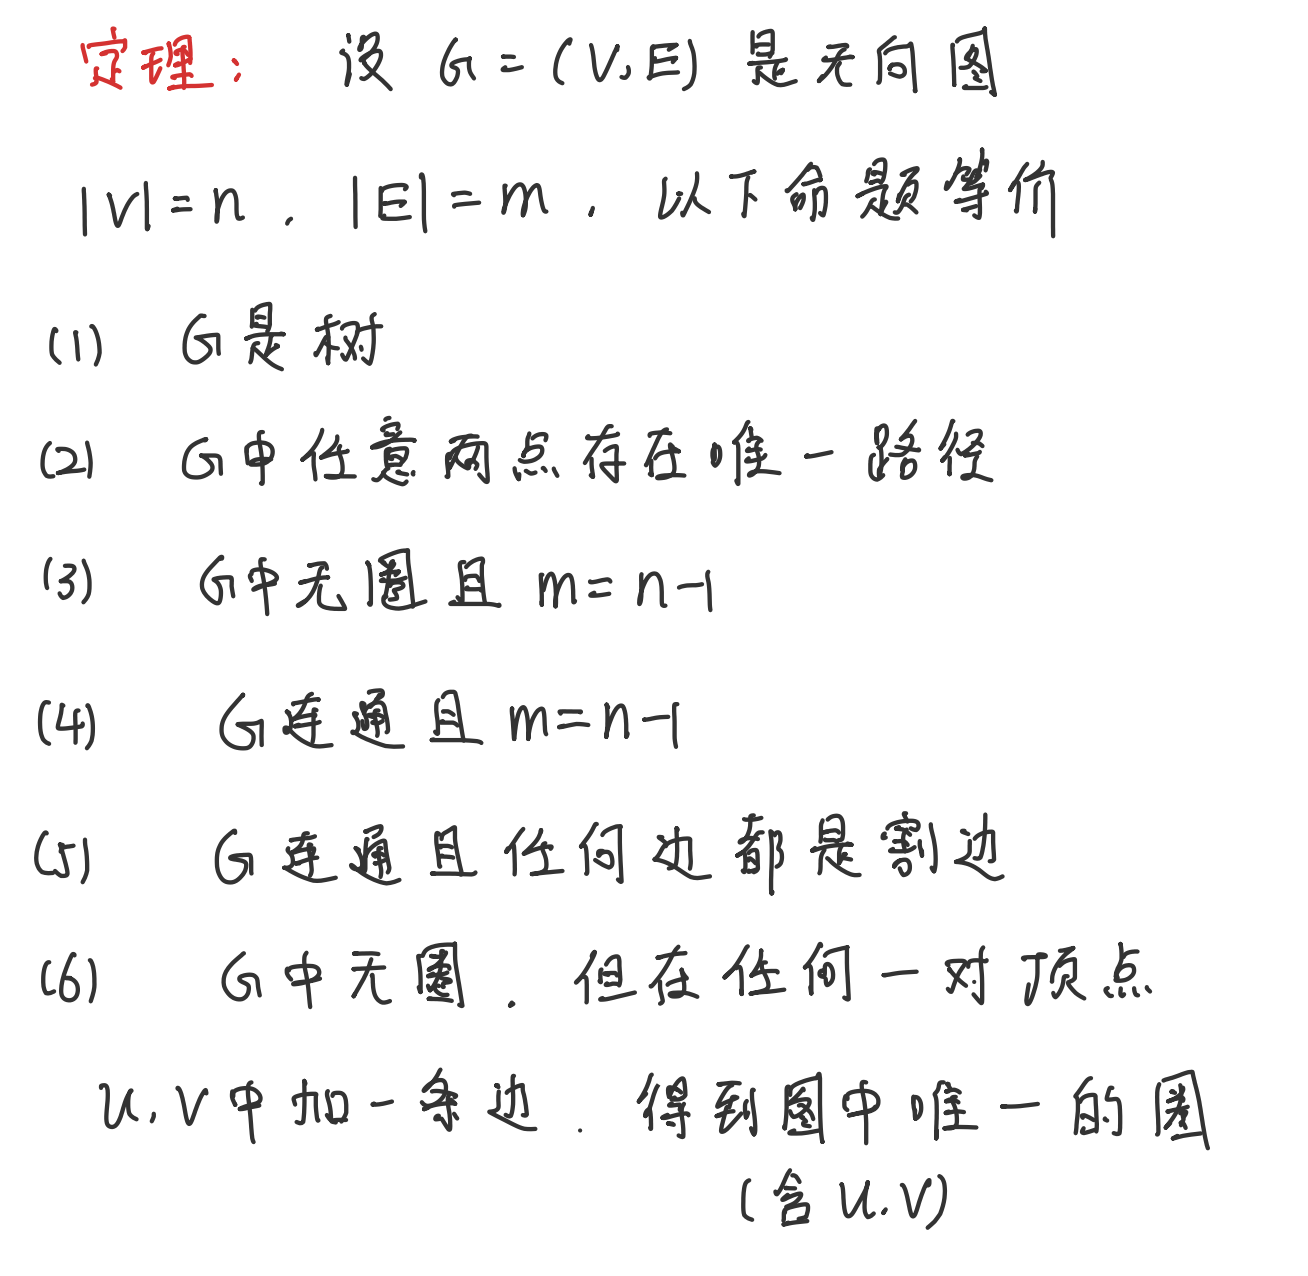 定理： 设 G = (V, E) 是无向图
|V| = n ， |E| = m ， 以下命题等价
(1) G是树
(2) G中任意两点存在唯一路径
(3) G中无圈且 m = n-1
(4) G连通且 m = n-1
(5) G连通且任何边都是割边
(6) G中无圈，但在任何一对顶点
u, v中加一条边，得到图中唯一的圈
(含 u, v)